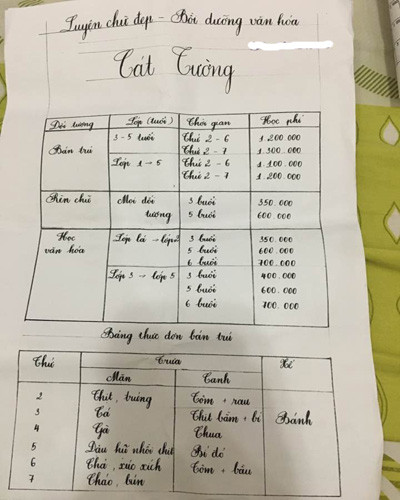 Luyện chữ đẹp - Bồi dưỡng văn hóa
Cát Tường
Đối tượng Lớp (tuổi) Thời gian Học phí
Bán trú 3 - 5 tuổi Thứ 2 - 6 1.200.000
Thứ 2 - 7 1.300.000
Lớp 1 - 5 Thứ 2 - 6 1.100.000
Thứ 2 - 7 1.200.000
Rèn chữ Mọi đối tượng 3 buổi 350.000
5 buổi 600.000
Học văn hóa Lớp lá → lớp 2 3 buổi 350.000
5 buổi 600.000
6 buổi 700.000
Lớp 3 → lớp 5 3 buổi 400.000
5 buổi 600.000
6 buổi 700.000
Bảng thực đơn bán trú
Thứ Trưa Xế
Mặn Canh
2 Thịt, trứng Tôm + rau
3 Cá Thịt bằm + bí Bánh
4 Gà Chua
5 Đậu hũ nhồi thịt Bí đỏ
6 Chả, xúc xích Tôm + bầu
7 Cháo, bún